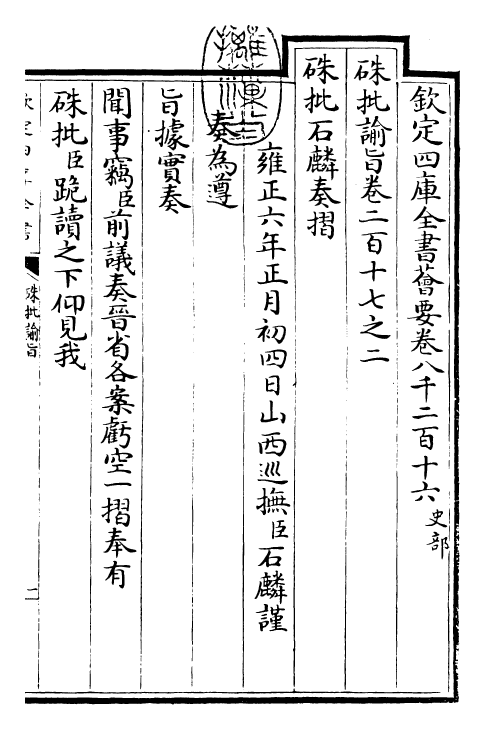 欽定四庫全書薈要卷八千二百十六 史部
硃批諭旨卷二百十七之二
硃批石麟奏摺
雍正六年正月初四日山西巡撫臣石麟謹
奏為遵
旨據實奏
聞事竊臣前議奏晉省各案虧空一摺奉有
硃批臣跪讀之下仰見我
硃批諭旨
二